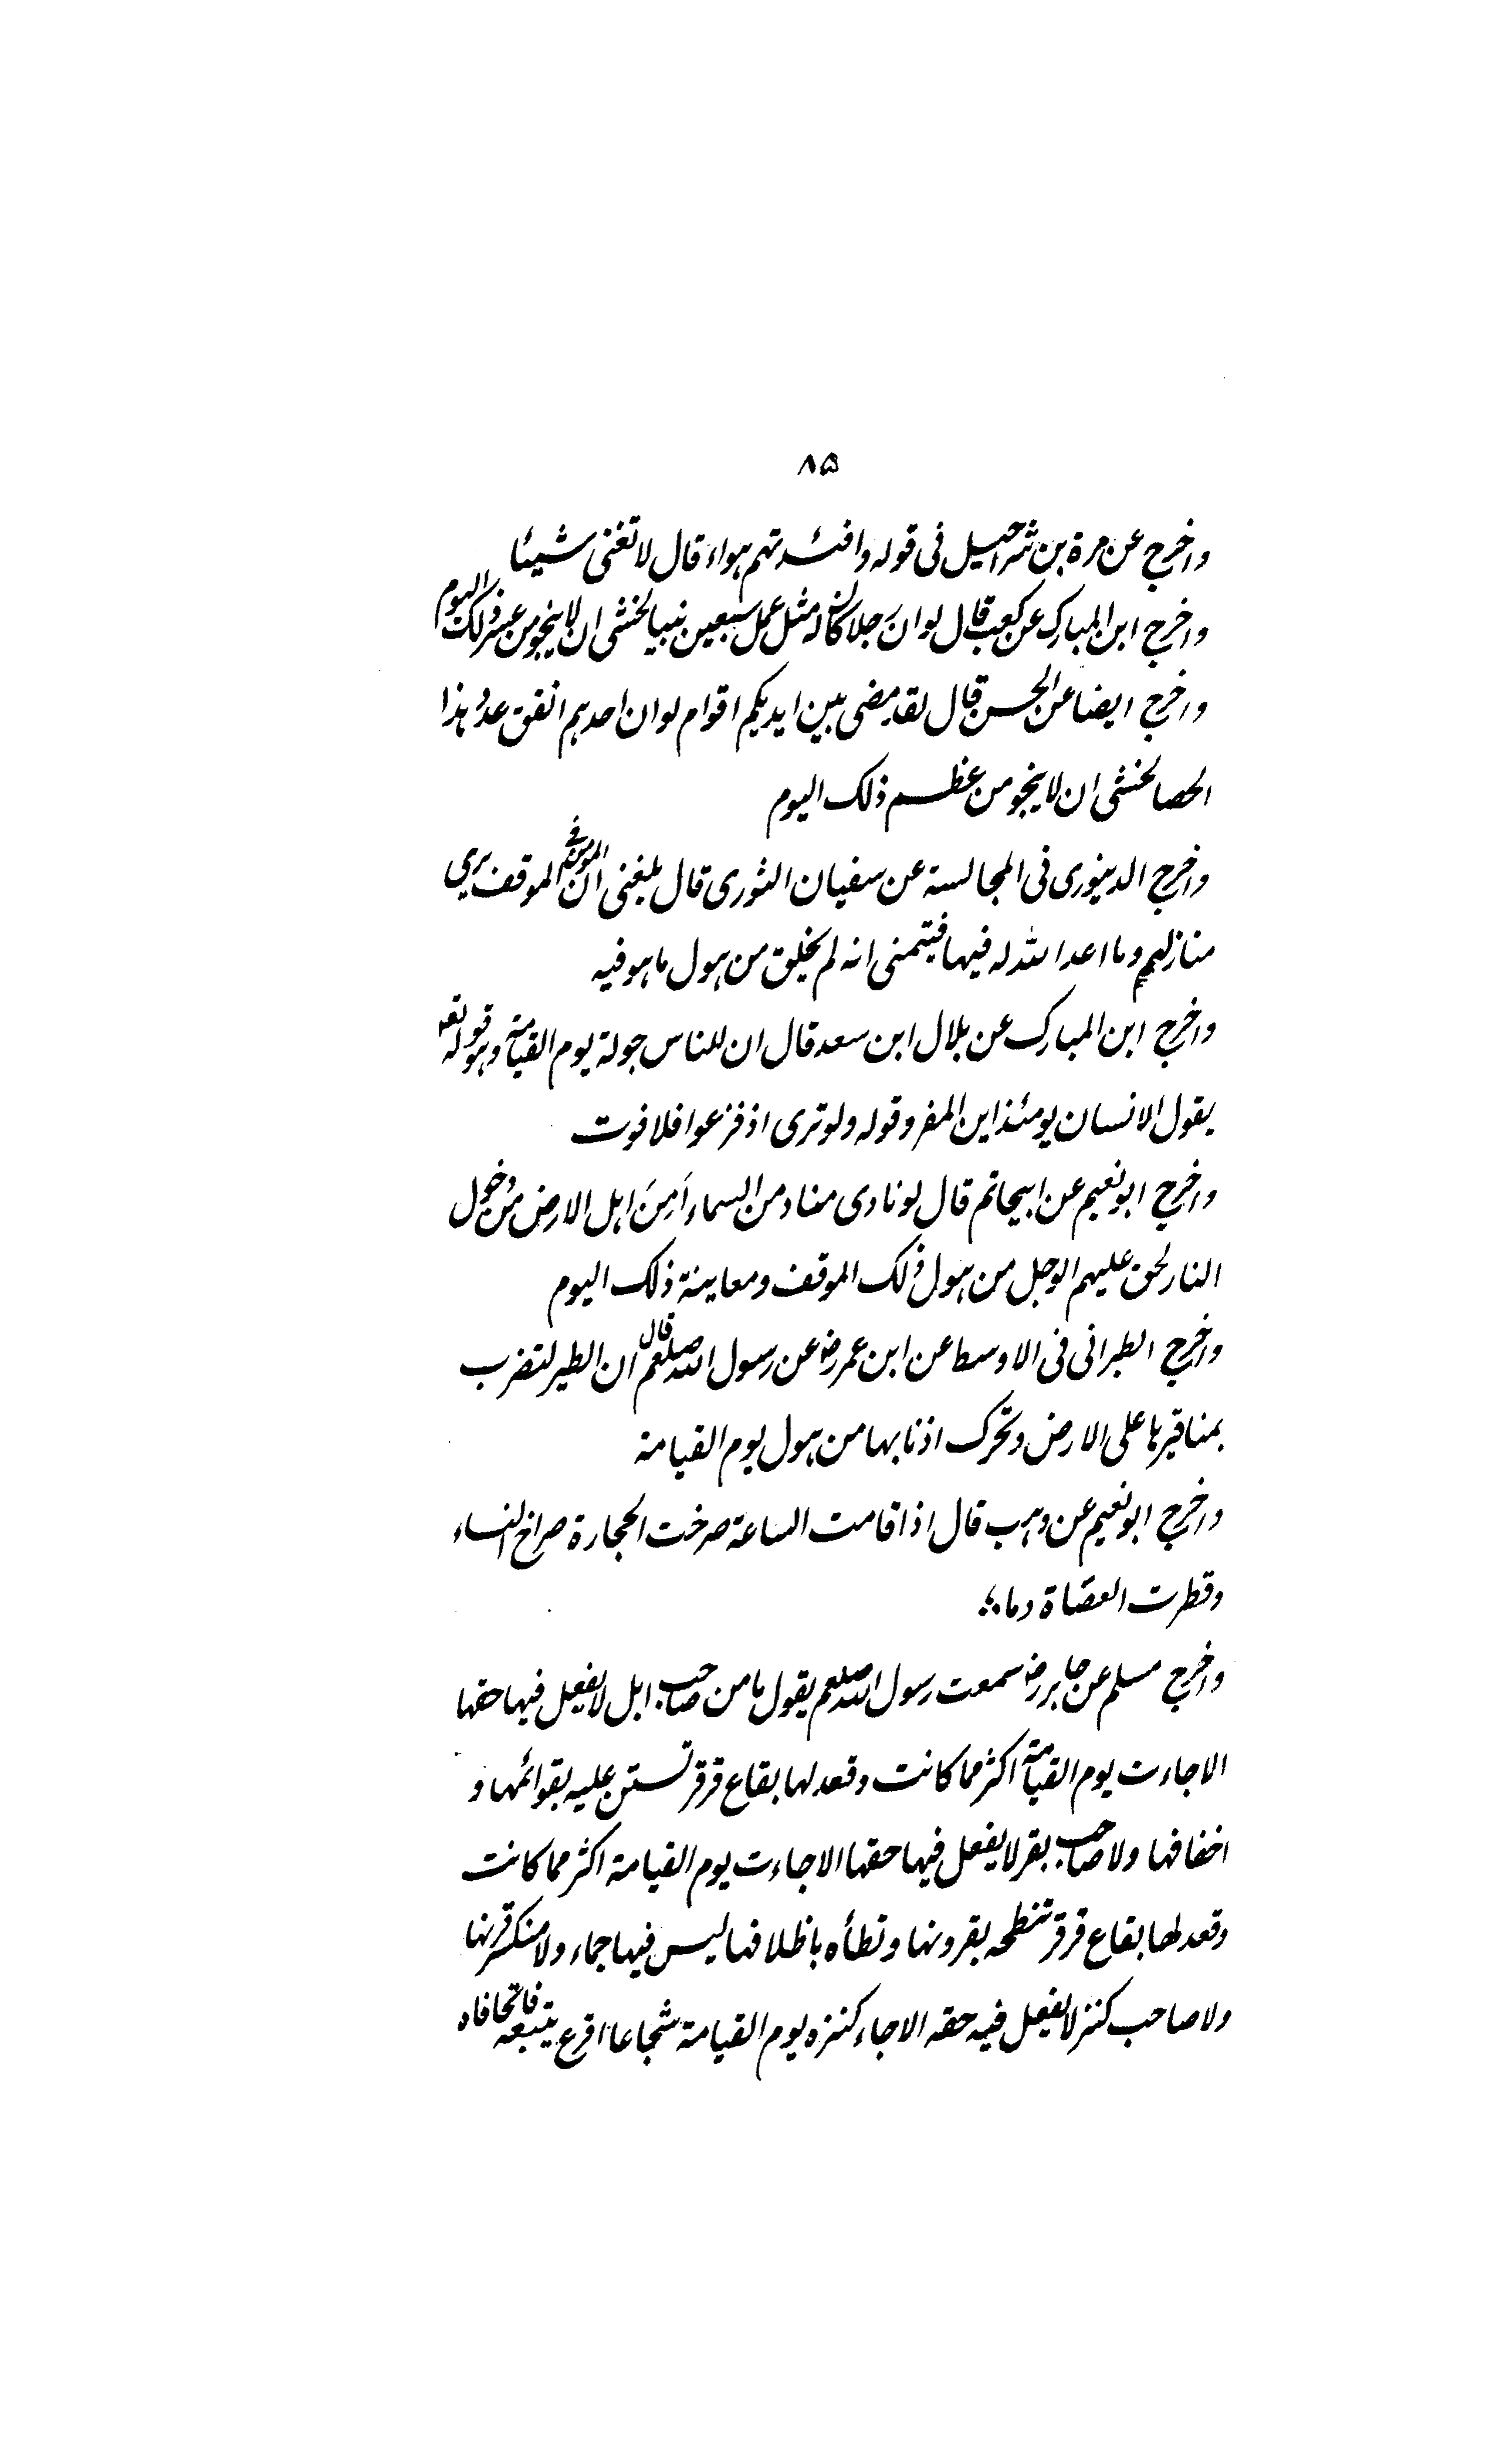 ۸۵
واخرج عن مرة بن شراحيل فى قوله وافئدتهم هواء قال لا تغنى شيئا
واخرج ابن المبارك عن كعب قال لو ان رجلا كان له مثل عمل سبعين نبيا لخشى ان لا ينجو من ذلك اليوم
واخرج ايضا عن الحسن قال لقد مضى بين ايديكم اقوام لو ان احدهم انفق عدد هذا
الحصا لخشى ان لا ينجو من عظم ذلك اليوم
واخرج الدينورى فى المجالسة عن سفيان الثورى قال بلغنى ان المؤمن فى الموقف يرى
منازلهم وما اعد الله له فيها فيتمنى انه لم يخلق من هول ما هو فيه
واخرج ابن المبارك عن بلال ابن سعد قال ان للناس جولة يوم القيامة وهو قوله تعہ
يقول الانسان يومئذ اين المفر وقوله ولو ترى اذ فزعوا فلا فوت
واخرج ابو نعيم عن ابيحاتم قال لو نادى مناد من السماء اَمِنَ اهل الارض من دخول
النار لحق عليهم الوجل من هول ذلك الموقف ومعاينة ذلك اليوم
واخرج الطبرانى فى الاوسط عن ابن عمر رض عن رسول الله صلعم قال ان الطير لتضرب
بمناقيرها على الارض وتحرك اذنابها من هول يوم القيامة
واخرج ابو نعيم عن وهب قال اذا قامت الساعة صرخت الحجارة صراخ النساء
وقطرت العضاة دما
واخرج مسلم عن جابر رض سمعت رسول الله صلعم يقول ما من صاحب ابل لا يفعل فيها حقها
الا جاءت يوم القيامة اكثر مما كانت وقعد لها بقاع قرقر تستن عليه بقوائمها و
اخفافها ولا صاحب بقر لا يفعل فيها حقها الا جاءت يوم القيامة اكثر مما كانت
وقعد لها بقاع قرقر تنطحه بقرونها وتطأه باظلافها ليس فيها جماء ولا منكسر قرنها
ولا صاحب كنز لا يفعل فيه حقه الا جاء كنزه يوم القيامة شجاعا اقرع يتبعه فاتحا فاه